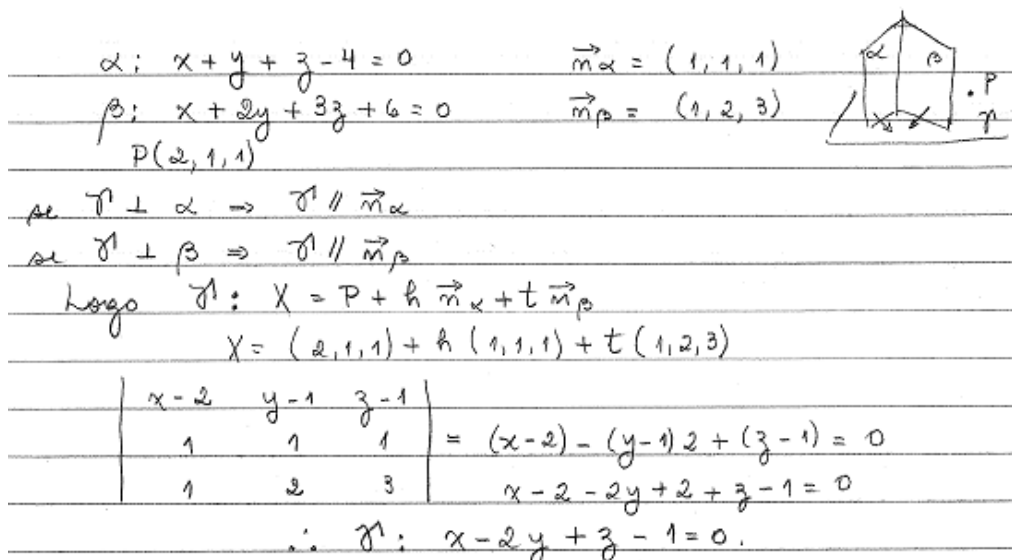 α: x + y + z - 4 = 0 n⃗α = (1, 1, 1)
β: x + 2y + 3z + 6 = 0 n⃗β = (1, 2, 3)
P(2, 1, 1)
α β . P γ
se γ ⊥ α ⇒ γ // n⃗α
se γ ⊥ β ⇒ γ // n⃗β
Logo γ: X = P + h n⃗α + t n⃗β
X = (2, 1, 1) + h (1, 1, 1) + t (1, 2, 3)
| x - 2 y - 1 z - 1 |
| 1 1 1 | = (x-2) - (y-1) 2 + (z-1) = 0
| 1 2 3 | x - 2 - 2y + 2 + z - 1 = 0
∴ γ: x - 2y + z - 1 = 0.